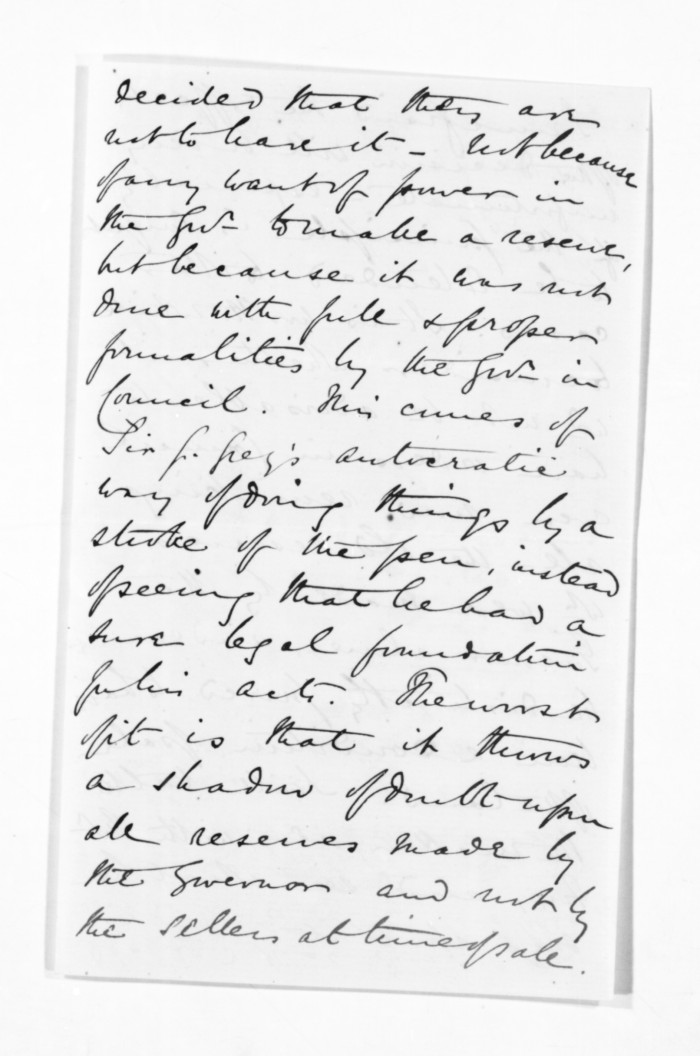 decided that they are
not to have it - not because
of any want of power in
the Govr. to make a reserve,
but because it was not
done with full & proper
formalities by the Govr. in
Council. This comes of
Sir G. Grey's autocratic
way of doing things by a
stroke of the pen, instead
of seeing that he had a
sure legal foundation
for his acts. The worst
of it is that it throws
a shadow of doubt upon
all reserves made by
the Governor and not by
the sellers at time of sale.